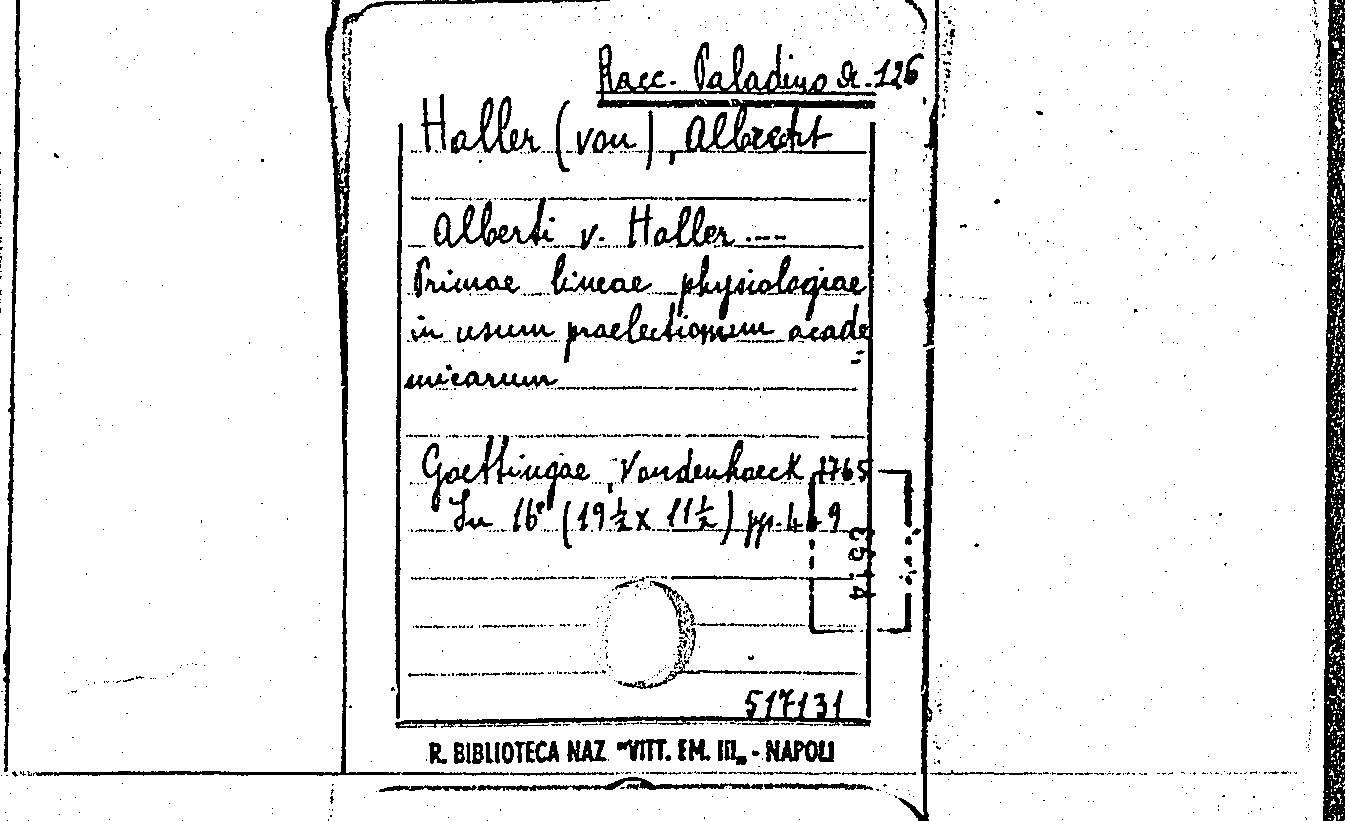 Racc. Paladino A. 126
Haller (von), Albrecht
Alberti v. Haller ....
Primae lineae physiologiae
in usum praelectionum acade
micarum
Goettingae, Vandenhoeck 1765
In 16° (19 ½ x 11 ½) pp.
517131
R. BIBLIOTECA NAZ "VITT. EM. III„ - NAPOLI